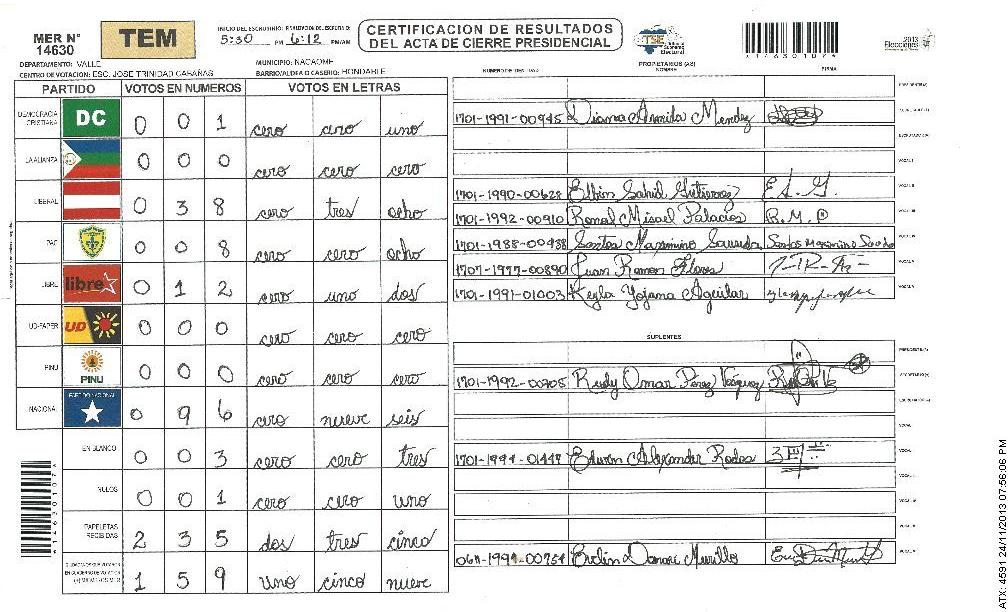 MER N° 14630
TEM
INICIO DEL ESCRUTINIO: 5:30 PM 6:12 PM/AM
CERTIFICACION DE RESULTADOS
DEL ACTA DE CIERRE PRESIDENCIAL
TSE
Tribunal Supremo Electoral
2013
Elecciones
DEPARTAMENTO: VALLE
MUNICIPIO: NACAOME
CENTRO DE VOTACION: ESC. JOSE TRINIDAD CABAÑAS
BARRIO/ALDEA O CASERIO: HONDABLE
PROPIETARIOS (AS)
NUMERO DE IDENTIDAD NOMBRE FIRMA
X14630107X
PARTIDO VOTOS EN NUMEROS VOTOS EN LETRAS
DEMOCRACIA CRISTIANA DC 0 0 1 cero cero uno
LA ALIANZA 0 0 0 cero cero cero
LIBERAL 0 3 8 cero tres ocho
PAC 0 0 8 cero cero ocho
LIBRE libre 0 1 2 cero uno dos
UD-FAPER UD 0 0 0 cero cero cero
PINU PINU 0 0 0 cero cero cero
NACIONAL PARTIDO NACIONAL 0 9 6 cero nueve seis
EN BLANCO 0 0 3 cero cero tres
NULOS 0 0 1 cero cero uno
PAPELETAS RECIBIDAS 2 3 5 dos tres cinco
1 5 9 uno cinco nueve
PRESIDENTE(A)
1701-1991-00945 Diana Armila Mendez SECRETARIO(A)
ESCRUTADOR(A)
VOCAL I
1701-1990-00628 Elbin Sahil Gutierrez E.S.G. VOCAL II
1701-1992-00910 Ronal Misael Palacios R.M.P VOCAL III
1701-1988-00938 Santos Maximino Saucedo Santos Maximino VOCAL IV
1707-1977-00890 Juan Ramon Flores VOCAL V
1701-1991-01003 Keyla Yojana Aguilar
SUPLENTES
PRESIDENTE(A)
1701-1992-00905 Rudy Omar Perez Vasquez SECRETARIO(A)
ESCRUTADOR(A)
VOCAL I
1701-1994-01447 Edwin Alexander Rodas
Evelin Danori Murillo
ATX: 4591 24/11/2013 07:56:06 PM